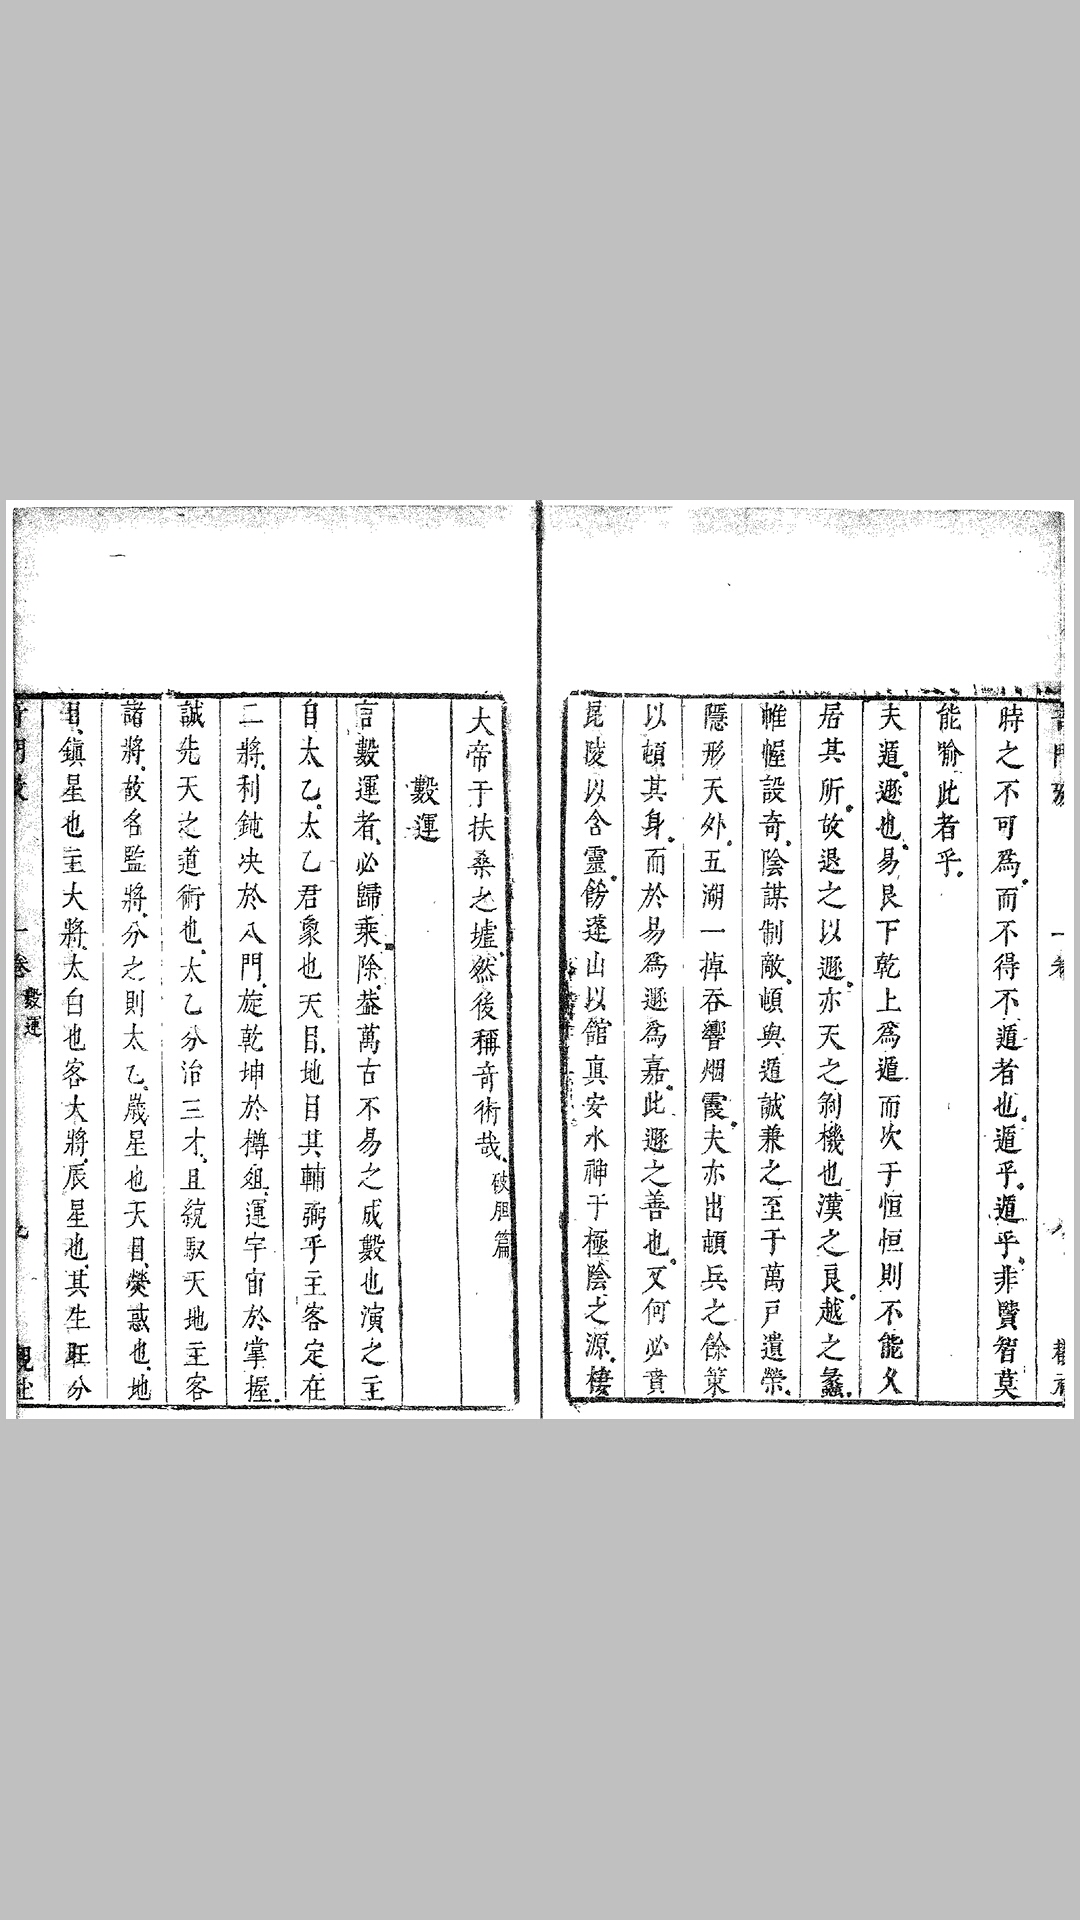 時之不可爲而不得不遁者也遁乎遁乎非賢智莫
能喻此者乎
夫遁遯也易艮下乾上爲遁而次于恒恒則不能久
居其所故退之以遯亦天之剝機也漢之良越之蠡
帷幄設奇陰謀制敵頓與遁誠兼之至于萬戸遺榮
隱形天外五湖一掉吞響烟霞夫亦出頓兵之餘策
以頓其身而於易爲遯爲嘉此遯之善也又何必賁
昆陵以含靈餝蓬山以館真安水神于極陰之源棲
大帝于扶桑之墟然後稱奇術哉破胆篇
數運
言數運者必歸乘除葢萬古不易之成數也演之主
自太乙太乙君象也天目地目其輔弼乎主客定在
二將利鈍決於八門旋乾坤於樽俎運宇宙於掌握
誠先天之道術也太乙分治三才且統馭天地主客
諸將故名監將分之則太乙歲星也天目熒惑也地
目鎮星也主大將太白也客大將辰星也其生旺分
一卷
數運
九